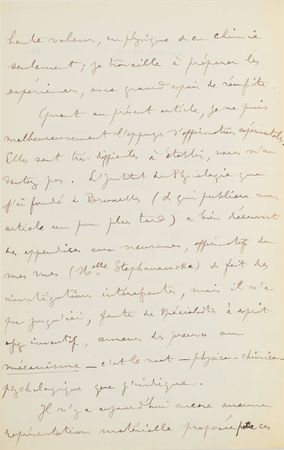 haute valeur, en physique ou en chimie
seulement; je travaille à préparer les
expériences, avec grand espoir de réussite.
Quant au présent article, je ne puis
malheureusement l'appuyer d'affirmations expérimentales.
Elles sont très difficiles à établir, vous n'en
doutez pas. L'Institut de Physiologie que
j'ai fondé à Bruxelles (& qui publiera mon
article un peu plus tard) a bien découvert
des appendices aux neurones, affirmatifs de
mes vues (Melle Stephanowska) & fait des
investigations intéressantes, mais il n'a
pu jusqu'ici, faute de spécialistes à esprit
inventif, amener des preuves au
mécanisme — c'est le mot — physico-chimico-
psychologique que j'indique.
Il n'y a aujourd'hui encore aucune
représentation matérielle proposée pour ces